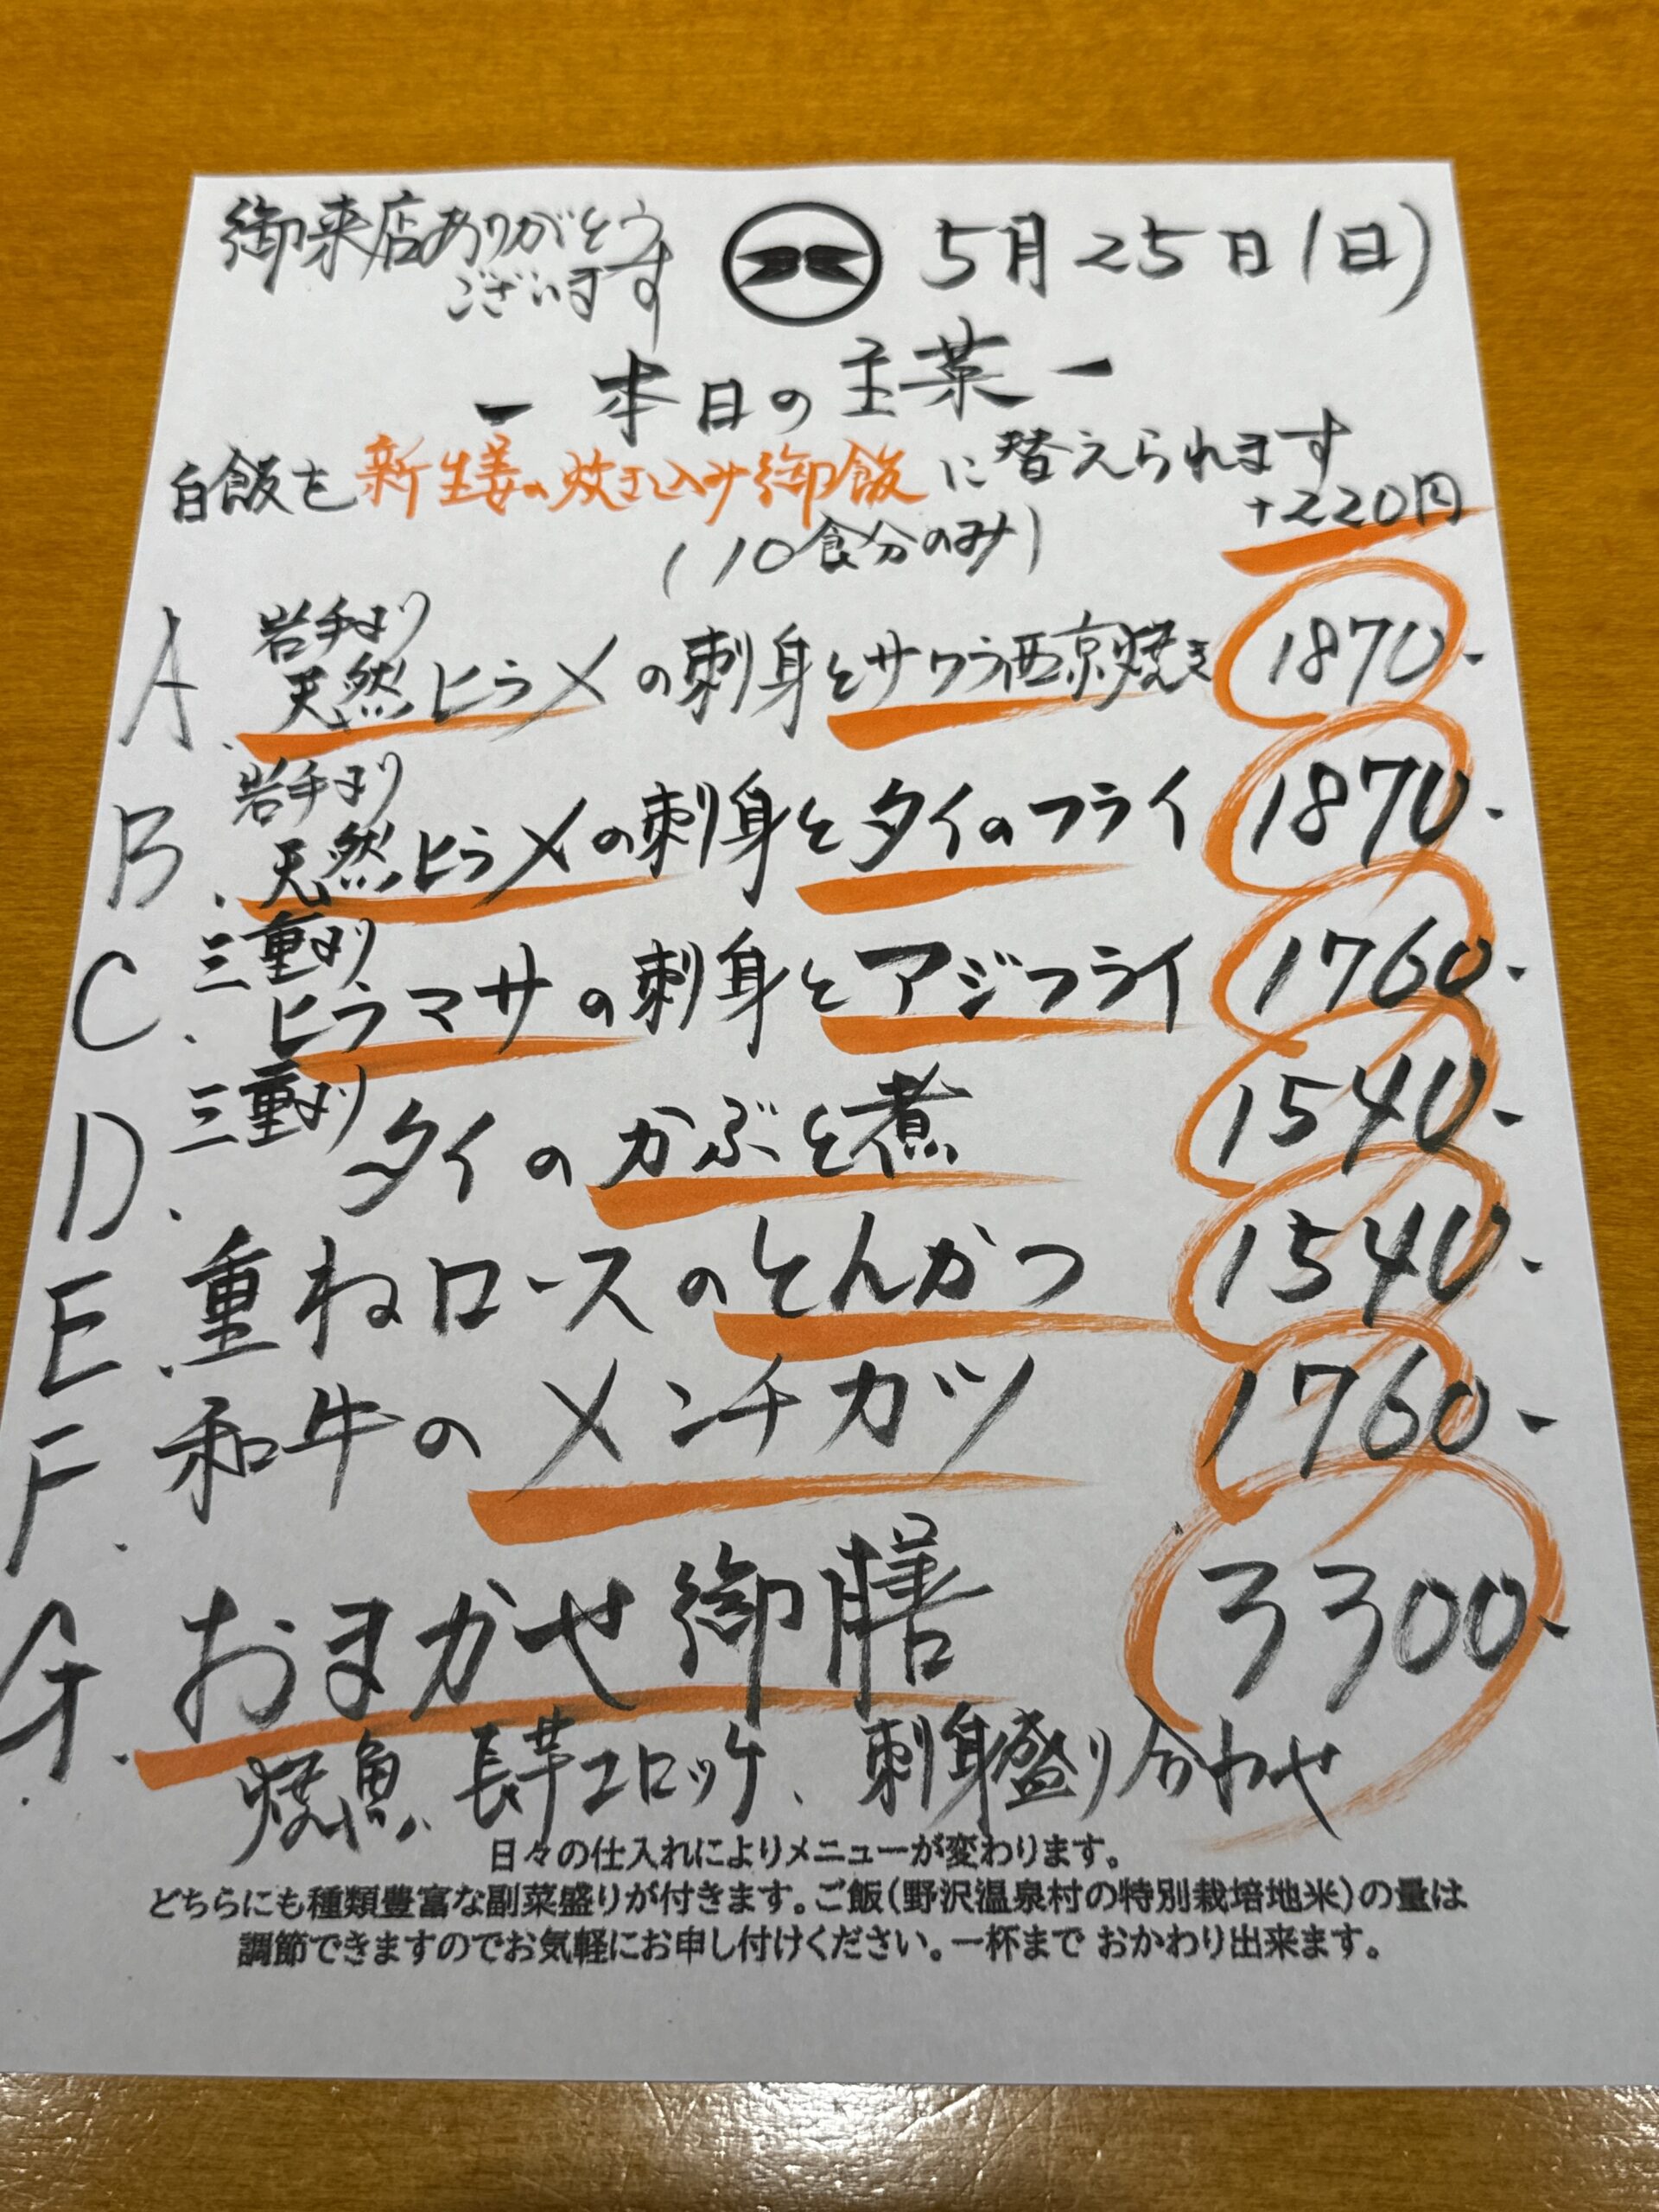 御来店ありがとう
ございます
5月25日(日)
ー本日の主菜ー
白飯を新生姜の炊き込み御飯に替えられます
+220円
(10食分のみ)
岩手より
A. 天然ヒラメの刺身とサワラ西京焼き 1870.-
岩手より
B. 天然ヒラメの刺身とタイのフライ 1870.-
三重より
C. ヒラマサの刺身とアジフライ 1760.-
三重より
D. タイのかぶと煮 1540.-
E. 重ねロースのとんかつ 1540.-
F. 和牛のメンチカツ 1760.-
G. おまかせ御膳 3300.-
焼魚、長芋コロッケ、刺身盛り合わせ
日々の仕入れによりメニューが変わります。
どちらにも種類豊富な副菜盛りが付きます。ご飯(野沢温泉村の特別栽培地米)の量は
調節できますのでお気軽にお申し付けください。一杯まで おかわり出来ます。